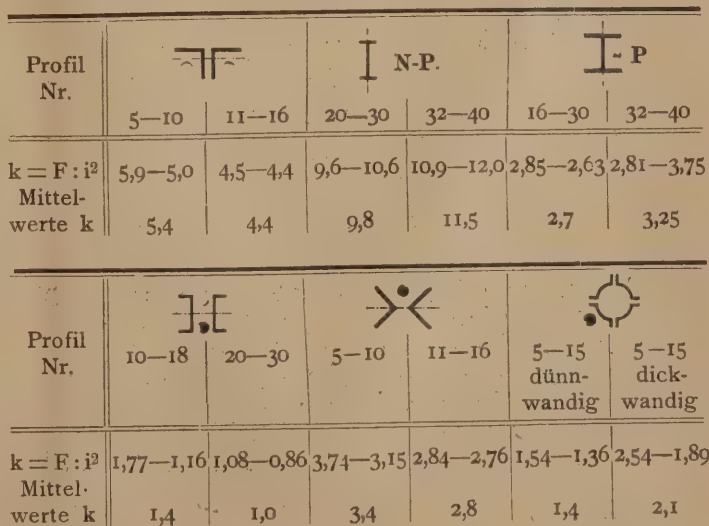 Profil Nr.
N-P.
P
5—10 11—16 20—30 32—40 16—30 32—40
k = F : i² 5,9—5,0 4,5—4,4 9,6—10,6 10,9—12,0 2,85—2,63 2,81—3,75
Mittel-
werte k 5,4 4,4 9,8 11,5 2,7 3,25
Profil Nr.
10—18 20—30 5—10 11—16 5—15 5—15
dünn- dick-
wandig wandig
k = F : i² 1,77—1,16 1,08—0,86 3,74—3,15 2,84—2,76 1,54—1,36 2,54—1,89
Mittel-
werte k 1,4 1,0 3,4 2,8 1,4 2,1